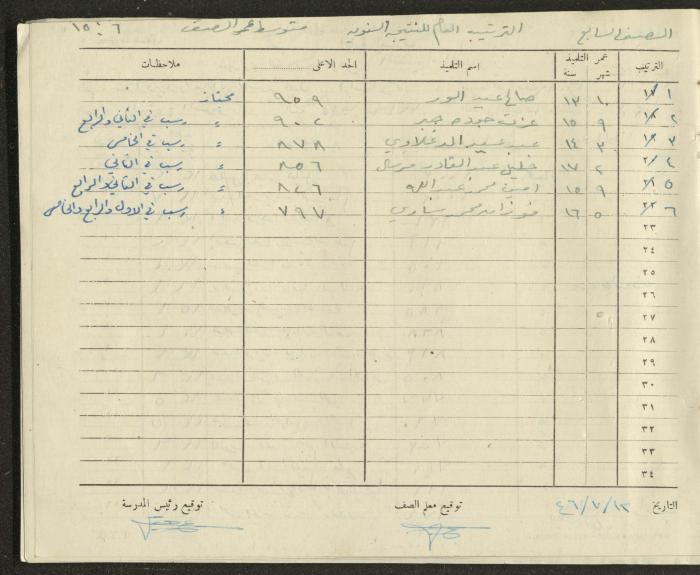 الصف السابع الترتيب العام للنتيجة السنوية متوسط عمر الصف ٦ : ١٥
الترتيب عمر التلميذ شهر سنة اسم التلميذ الحد الاعلى ملاحظات
١ ١٠ ١٣ صالح عبد ٩٥٩ ممتاز
٢ ٩ ١٥ عزت جوده جبر ٩٠٢ " رسب في الثاني والرابع
٣ ٣ ١٤ عبد ٨٧٨ " رسب في الخامس
٤ ٢ ١٧ خليل عبد القادر مرسال ٨٥٦ " رسب في الثاني
٥ ٩ ١٥ امين محمد عبد الله ٨٢٦ " رسب في الثاني والرابع
٦ ٥ ١٦ محمد ٧٩٧ " رسب في الاول والرابع والخامس
٢٣
٢٤
٢٥
٢٦
٢٧
٢٨
٢٩
٣٠
٣١
٣٢
٣٣
٣٤
التاريخ ٤٦/٧/١٣ توقيع معلم الصف توقيع رئيس المدرسة